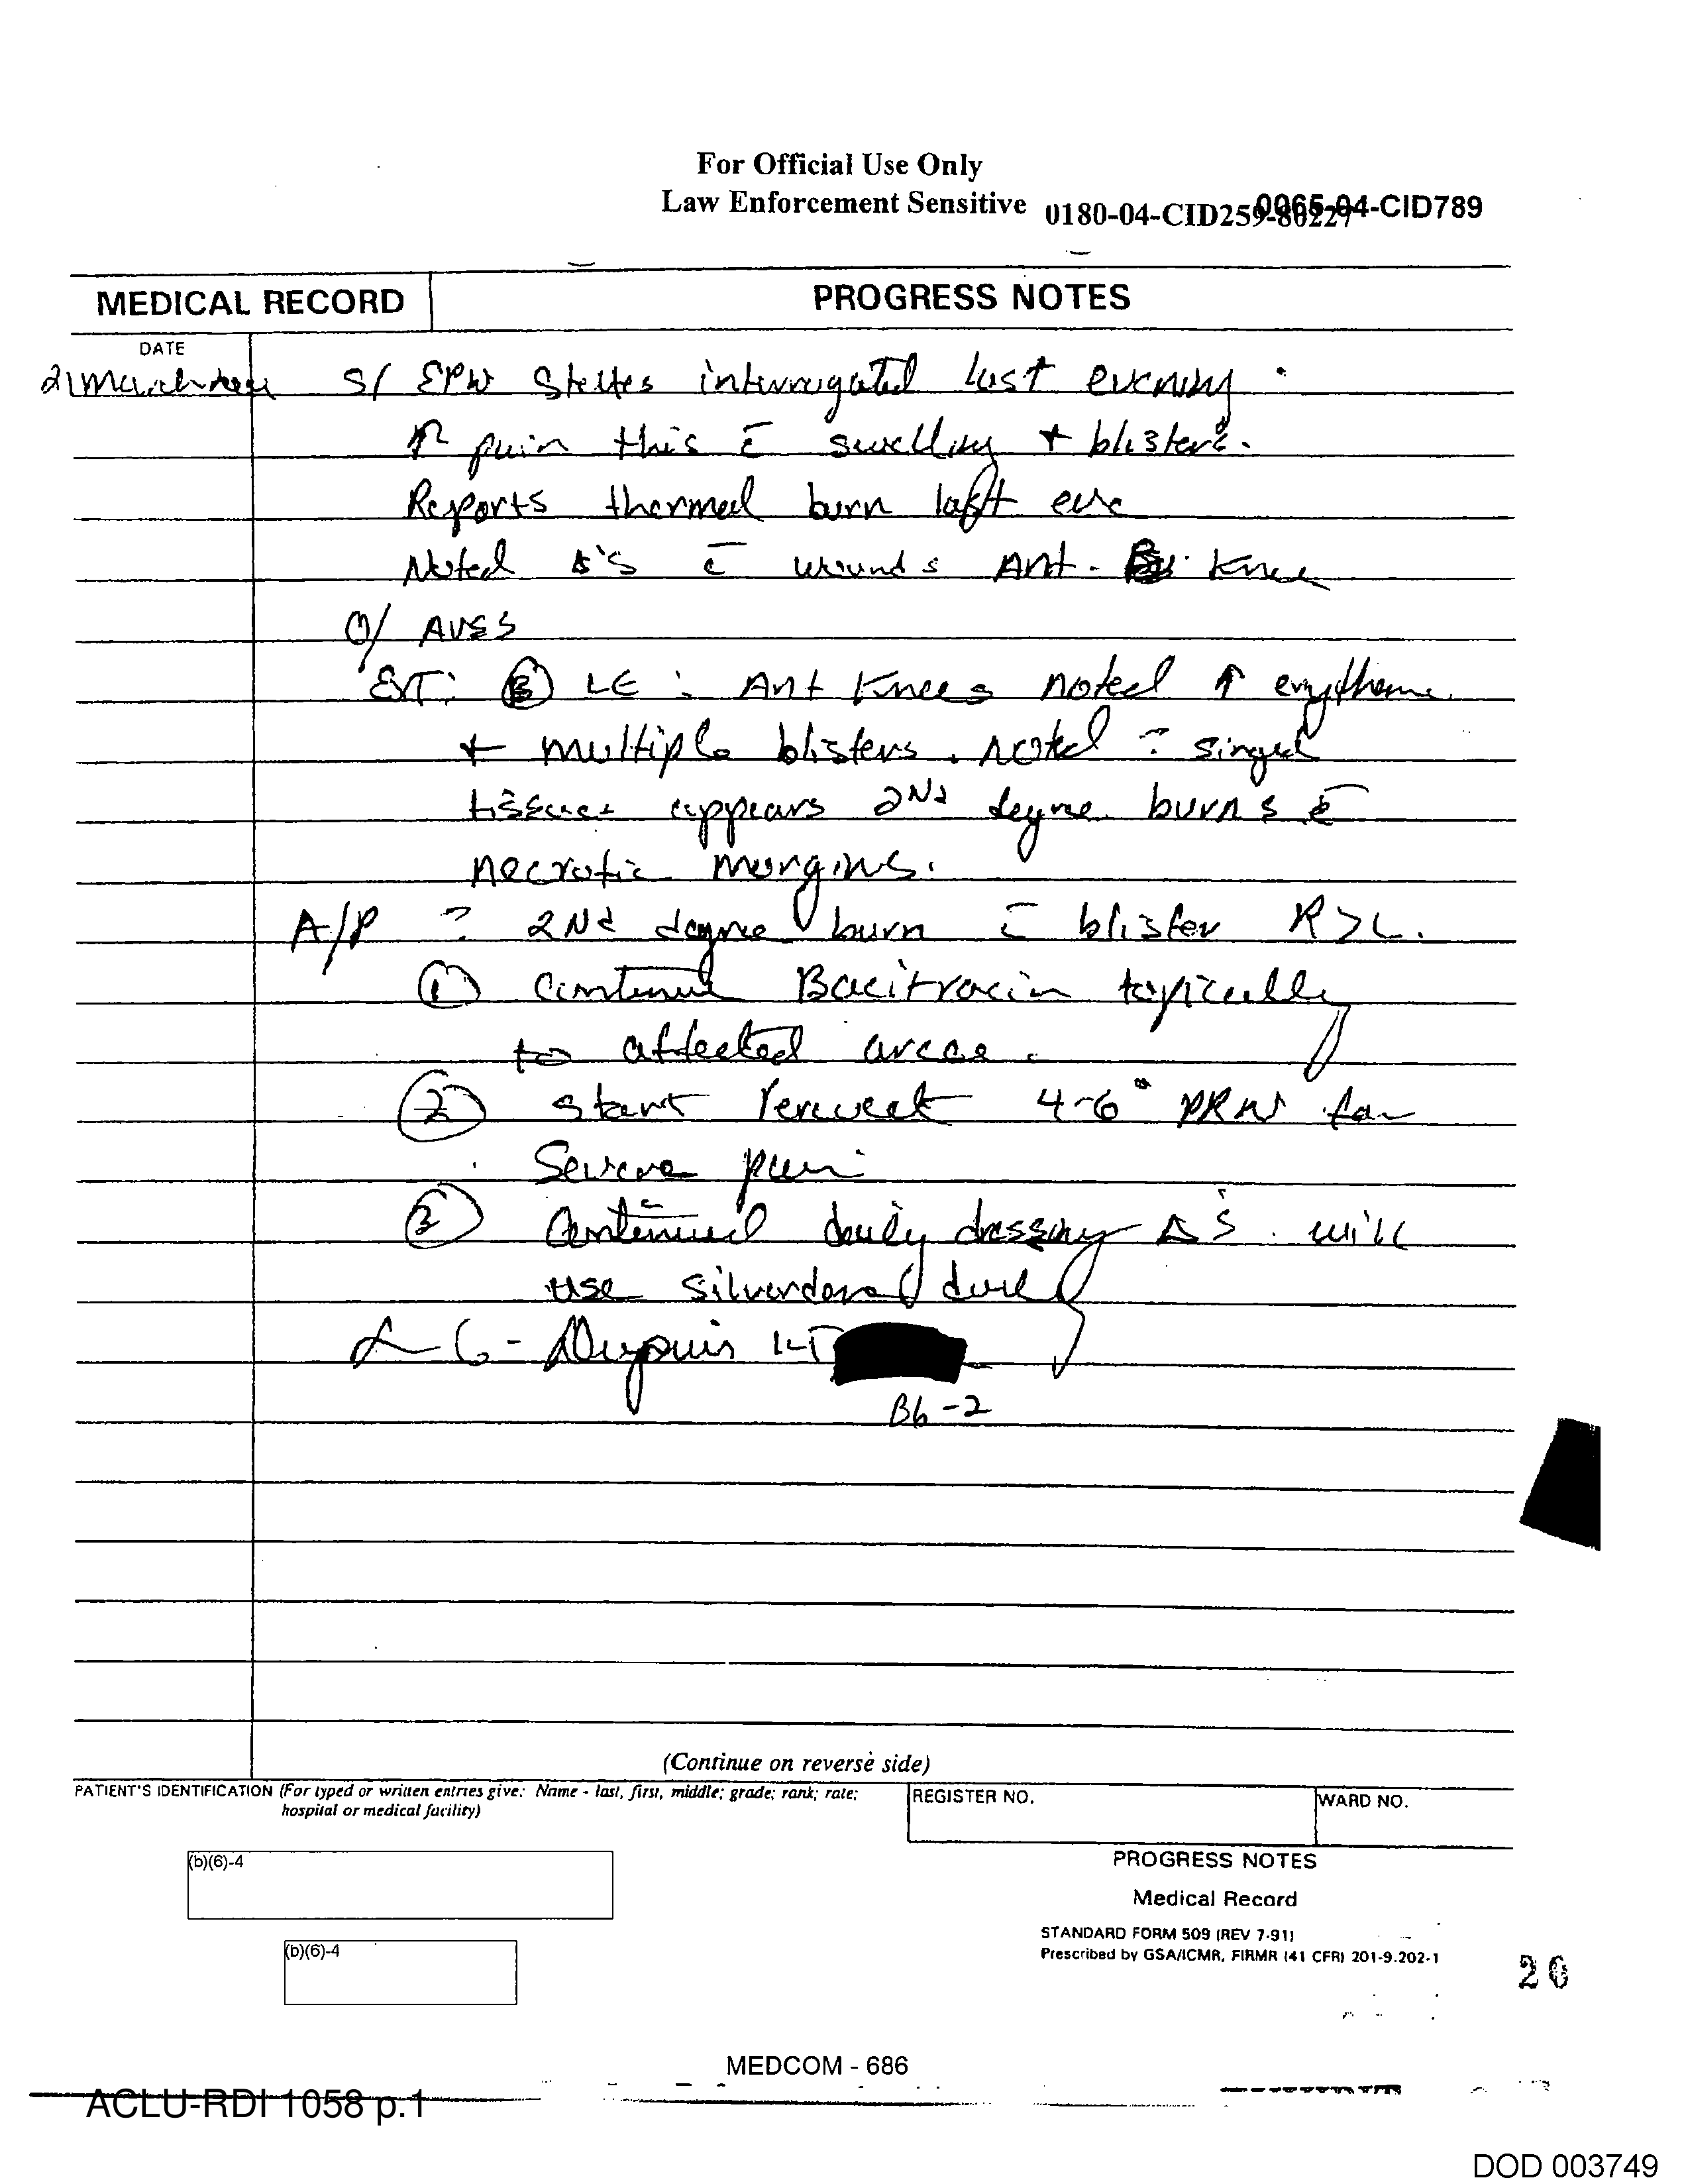 For Official Use Only
Law Enforcement Sensitive 0180-04-CID259-80227 0065-04-CID789
MEDICAL RECORD PROGRESS NOTES
DATE
21 March
S/ EPW States interrogated last evening.
↑ pain this c̄ swelling + blisters.
Reports thermal burn last eve
Noted Δ's c̄ wounds Ant. Knee
O/ AVSS
EXT: Ⓑ LE : Ant Knees noted ↑ erythema
+ multiple blisters. noted ? singed
tissues appears 2Nd degree burns c̄
necrotic margins.
A/P ? 2Nd degree burn c̄ blister R>L.
① Continue Bacitracin topically
to affected areas.
② Start Percocet 4-6° PRN for
Severe pain
③ Continued daily dressing Δ's will
use silverdene
LT
B6-2
(Continue on reverse side)
PATIENT'S IDENTIFICATION (For typed or written entries give: Name - last, first, middle; grade; rank; rate;
hospital or medical facility)
REGISTER NO.
WARD NO.
(b)(6)-4
(b)(6)-4
PROGRESS NOTES
Medical Record
STANDARD FORM 509 (REV 7-91)
Prescribed by GSA/ICMR, FIRMR (41 CFR) 201-9.202-1
26
MEDCOM - 686
ACLU-RDI 1058 p.1
DOD 003749